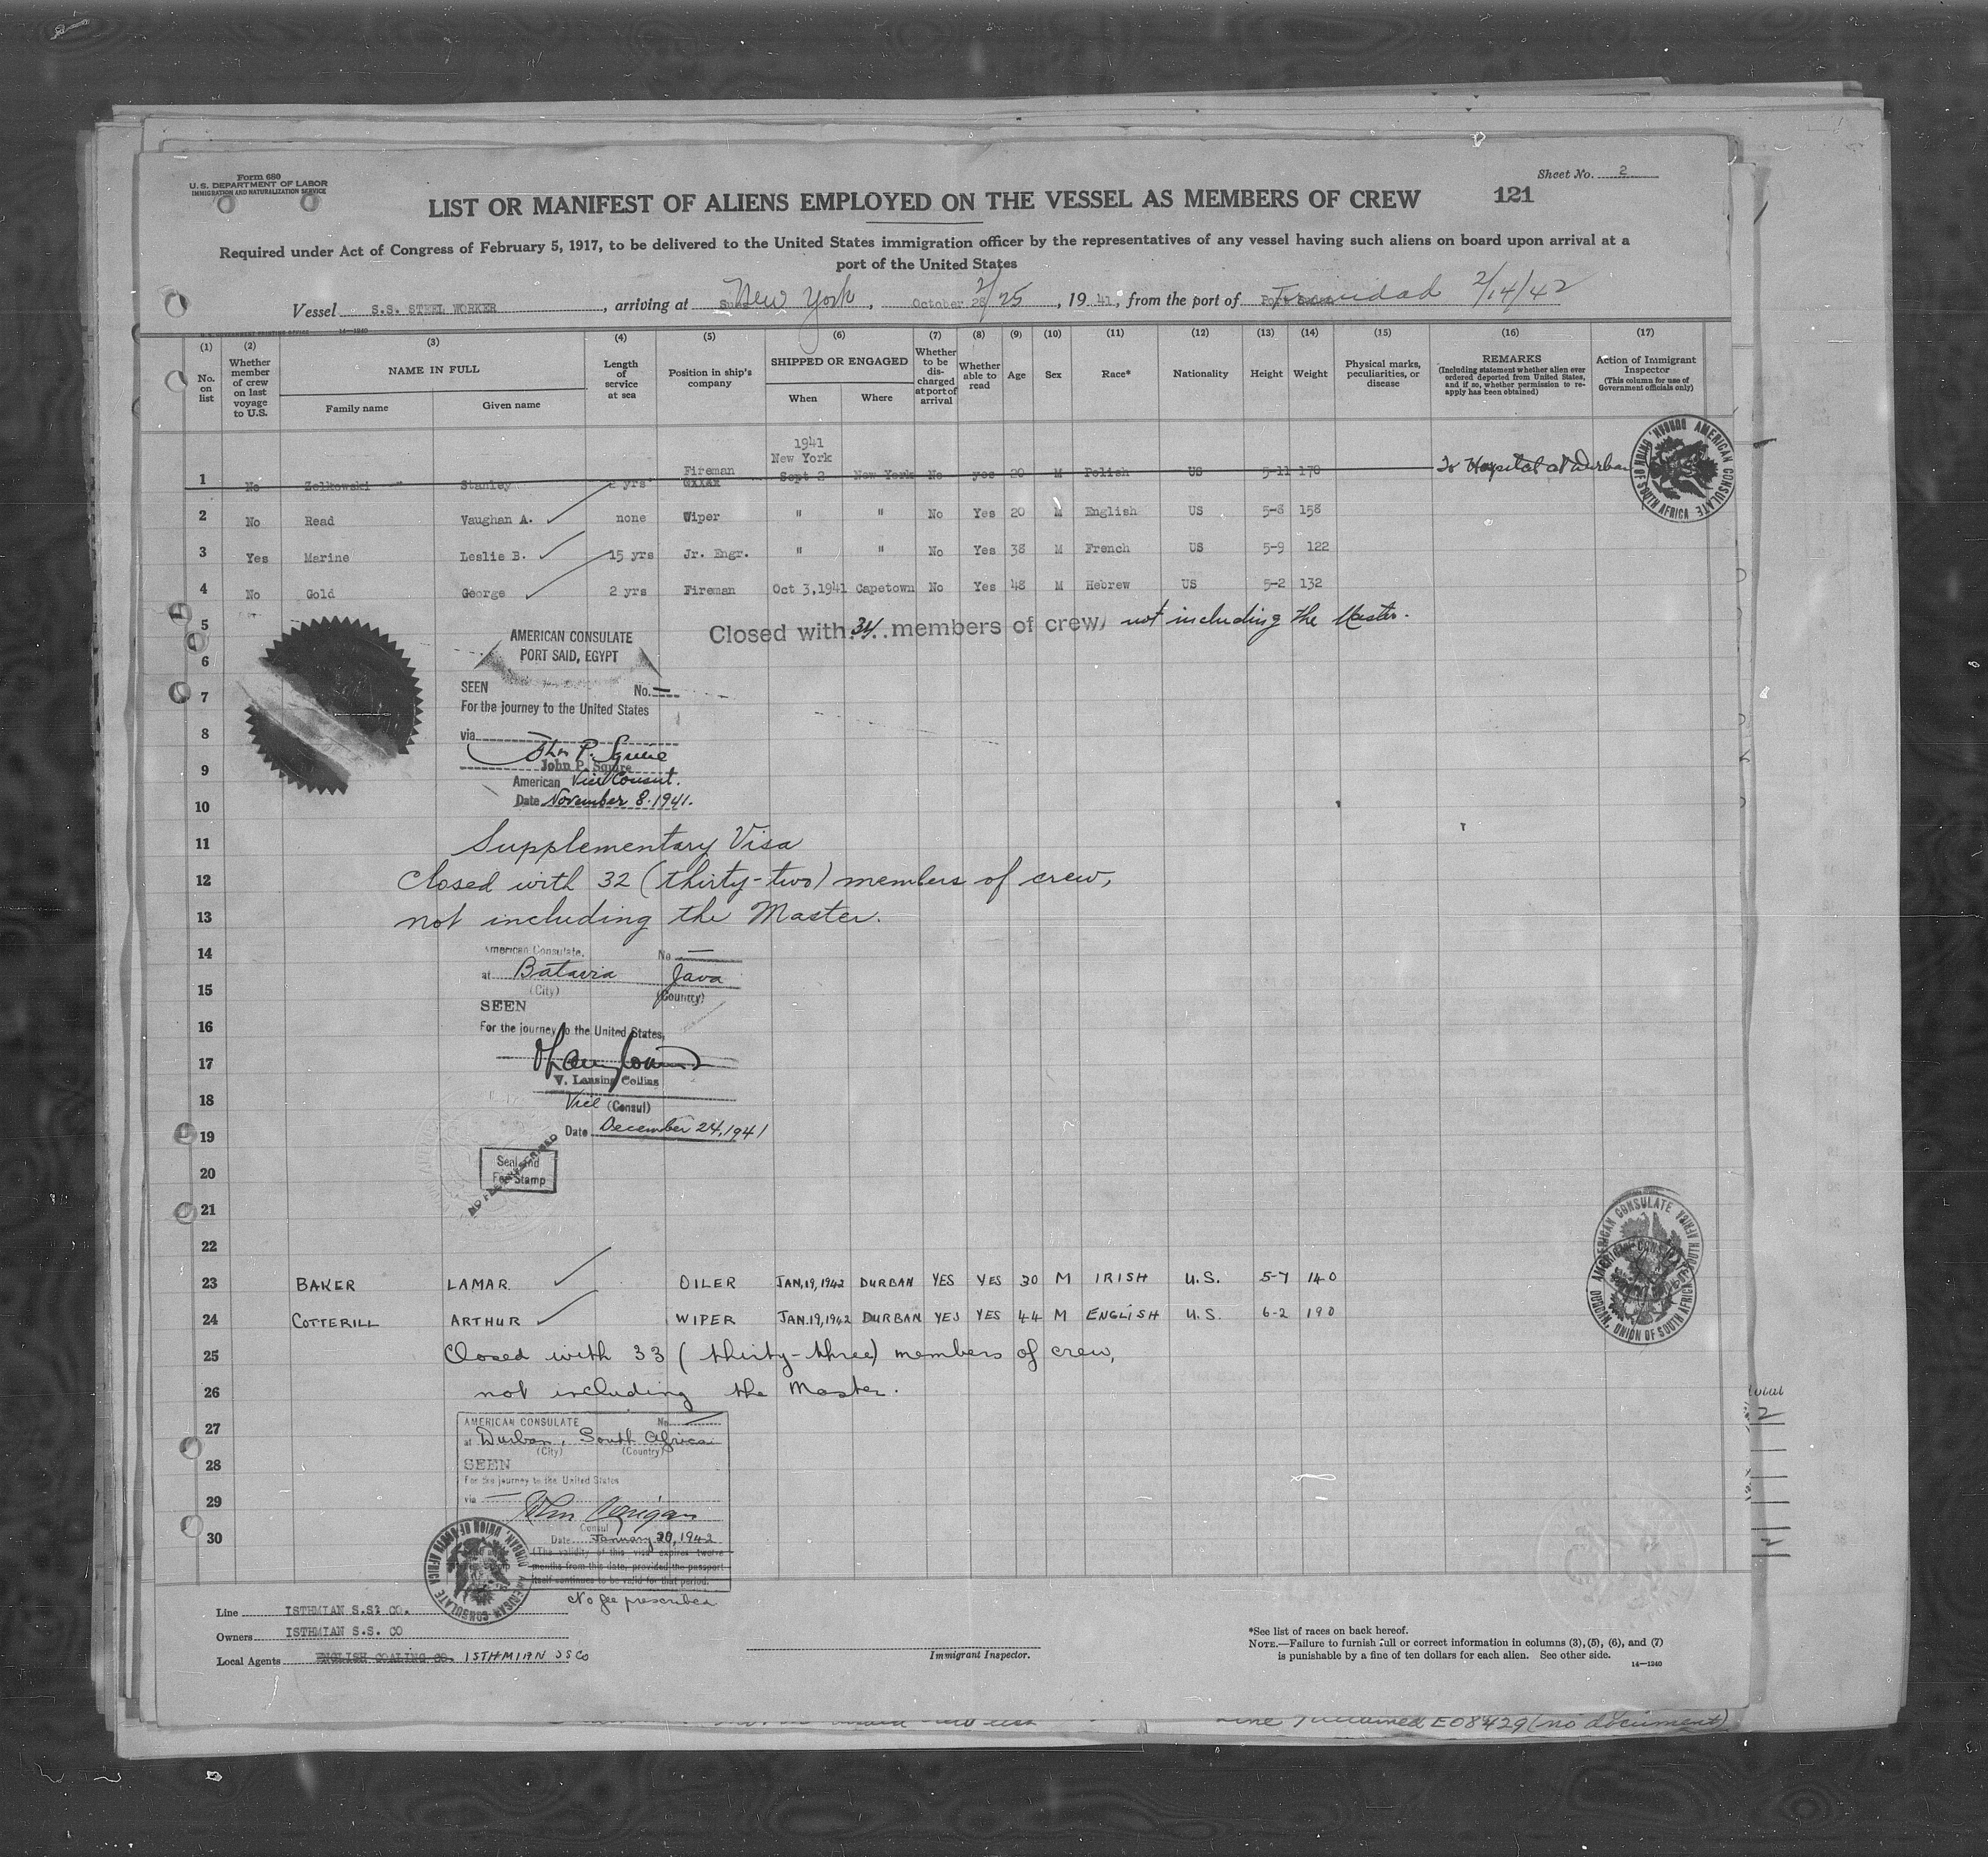 Form 680
U.S. DEPARTMENT OF LABOR
IMMIGRATION AND NATURALIZATION SERVICE
Sheet No. 2
LIST OR MANIFEST OF ALIENS EMPLOYED ON THE VESSEL AS MEMBERS OF CREW
121
Required under Act of Congress of February 5, 1917, to be delivered to the United States immigration officer by the representatives of any vessel having such aliens on board upon arrival at a
port of the United States
Vessel S.S. STEEL WORKER, arriving at New York, October 28 2/25, 1941, from the port of Trinidad 2/14/42
U.S. GOVERNMENT PRINTING OFFICE 14—1240
(1) (2) (3) (4) (5) (6) (7) (8) (9) (10) (11) (12) (13) (14) (15) (16) (17)
No. on list
Whether member of crew on last voyage to U.S.
NAME IN FULL
Family name
Given name
Length of service at sea
Position in ship's company
SHIPPED OR ENGAGED
When
Where
Whether to be discharged at port of arrival
Whether able to read
Age
Sex
Race*
Nationality
Height
Weight
Physical marks, peculiarities, or disease
REMARKS
(Including statement whether alien ever ordered deported from United States, and if so, whether permission to reapply has been obtained)
Action of Immigrant Inspector
(This column for use of Government officials only)
1941
New York
Fireman
1 No Zelkowski Stanley 2 yrs Sept 2 New York No yes 20 M Polish US 5-11 170 To Hospital at Durban
2 No Read Vaughan A. none Wiper " " No Yes 20 M English US 5-8 158
3 Yes Marine Leslie B. 15 yrs Jr. Engr. " " No Yes 38 M French US 5-9 122
4 No Gold George 2 yrs Fireman Oct 3,1941 Capetown No Yes 48 M Hebrew US 5-2 132
5 Closed with 34 members of crew, not including the Master.
AMERICAN CONSULATE
PORT SAID, EGYPT
6
SEEN No. —
7 For the journey to the United States
8 via
John P. Squire
9 John P. Squire
American Vice Consul.
10 Date November 8. 1941.
11 Supplementary Visa
12 Closed with 32 (thirty-two) members of crew,
13 not including the Master.
14 American Consulate, No —
at Batavia Java
15 (City) (Country)
SEEN
16 For the journey to the United States,
17
V. Lansing Collins
18 Vice (Consul)
19 Date December 24, 1941
20 Seal and
Fee Stamp
NO FEE PRESCRIBED
21
22
23 BAKER LAMAR. OILER JAN,19,1942 DURBAN YES YES 30 M IRISH U.S. 5-7 140
24 COTTERILL ARTHUR WIPER JAN.19,1942 DURBAN YES YES 44 M ENGLISH U.S. 6-2 190
25 Closed with 33 (thirty-three) members of crew,
26 not including the Master.
27 AMERICAN CONSULATE No.
at Durban, South Africa
(City) (Country)
28 SEEN
For the journey to the United States
29 via —
John Corrigan
Consul
30 Date January 20, 1942
(The validity of this visa expires twelve
months from this date, provided the passport
itself continues to be valid for that period.
No fee prescribed
AMERICAN CONSULATE DURBAN, UNION OF SOUTH AFRICA
AMERICAN CONSULATE DURBAN, UNION OF SOUTH AFRICA
AMERICAN CONSULATE DURBAN, UNION OF SOUTH AFRICA
Line ISTHMIAN S.S. CO.
Owners ISTHMIAN S.S. CO
Local Agents ENGLISH COALING CO. ISTHMIAN SS CO
Immigrant Inspector.
*See list of races on back hereof.
NOTE.—Failure to furnish full or correct information in columns (3), (5), (6), and (7)
is punishable by a fine of ten dollars for each alien. See other side.
14—1240
E08429 (no document)